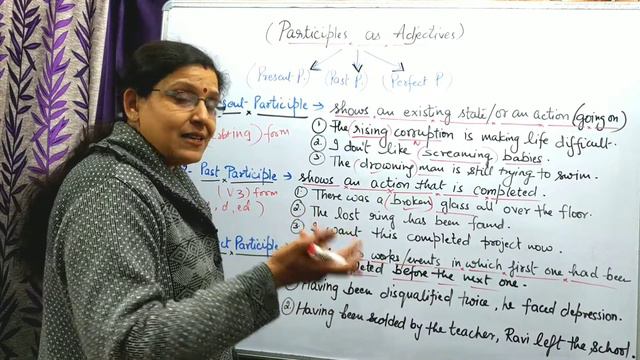 (Participles as Adjectives)
(Present P.) (Past P.) (Perfect P.)
Participle → shows an existing state/or an action (going on)
ing) form
① The rising corruption is making life difficult.
② I don't like screaming babies.
③ The (drowning) man is still trying to swim.
Past Participle → shows an action that is completed.
(V3) form
, d, ed)
① There was a (broken) glass all over the floor.
② The lost ring has been found.
③ I want this completed project now.
Participle works/events in which first one had been
before the next one.
① Having been disqualified twice, he faced depression.
② Having been scolded by the teacher, Ravi left the school.